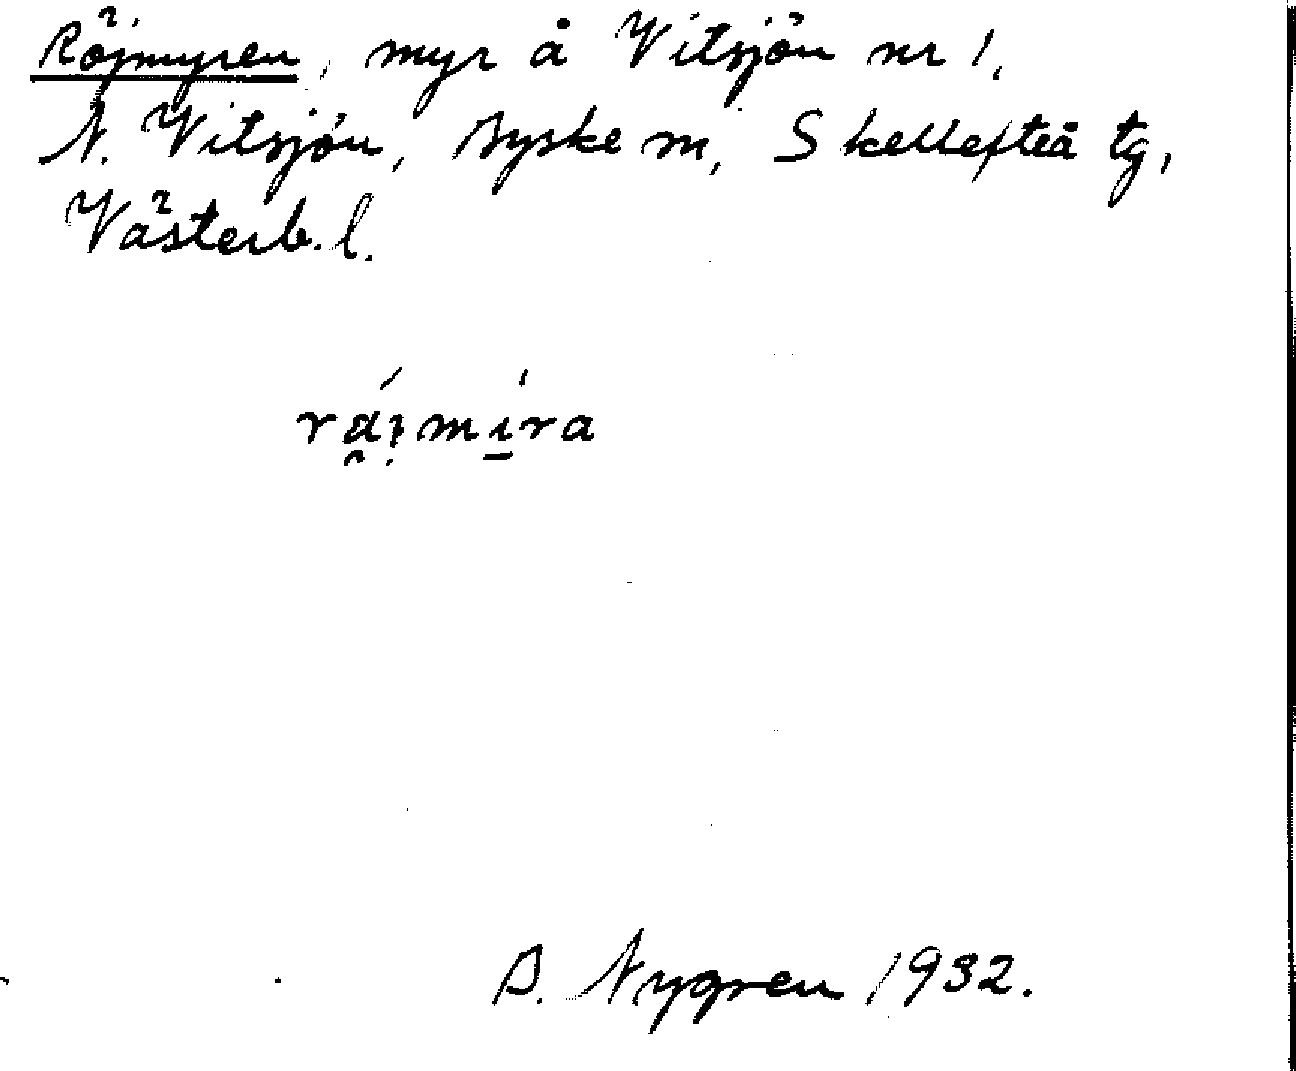 Röjmyren, myr å Vitsjön nr 1,
N. Vitsjön, Byske sn, Skellefteå tg,
Västerb. l.
rá̯i̤mí̱ra
B. Nygren 1932.